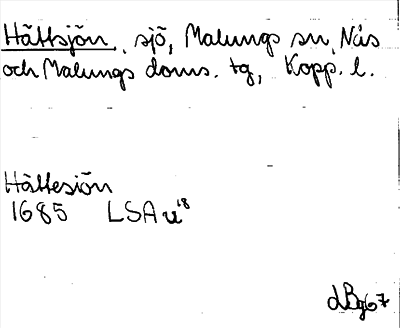 Hättsjön, sjö, Malungs sn, Nås
och Malungs doms. tg, Kopp. l.
Hättesiön
1685 LSA u¹⁸
dBg67